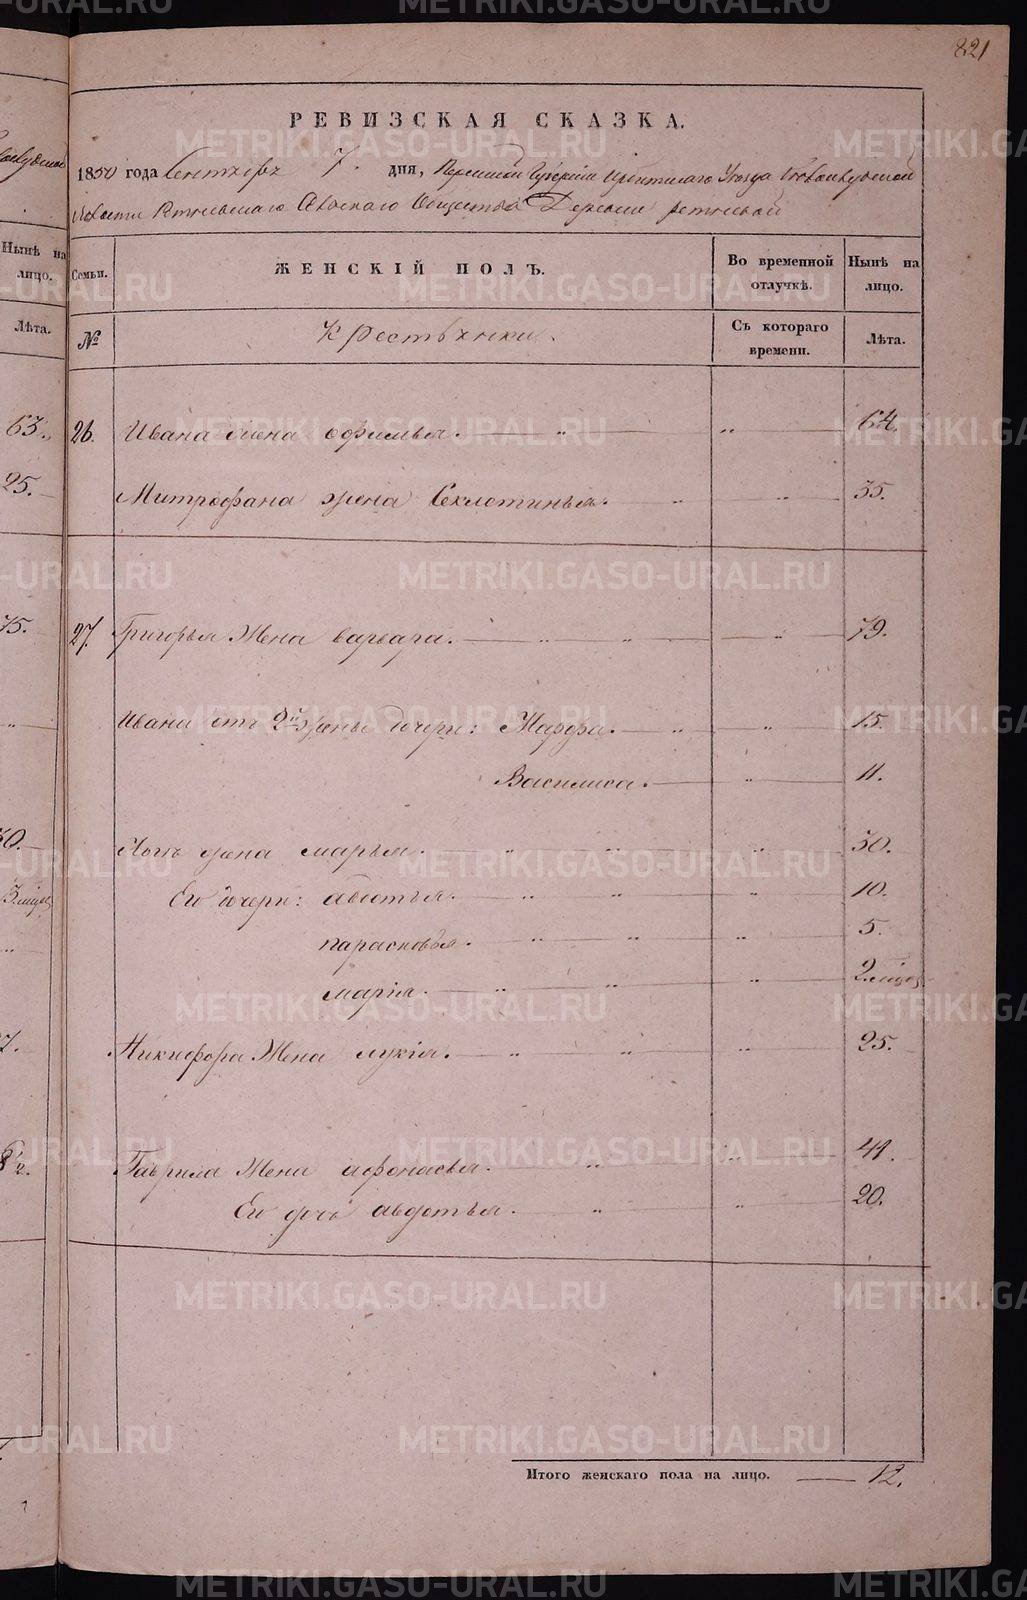 821
РЕВИЗСКАЯ СКАЗКА.
1850 года Сентября 7. дня, Пермской Губернии Ирбитскаго Уезда
Волости Ретневскаго Сельскаго Общества Деревни Ретневой
Семьи. ЖЕНСКІЙ ПОЛЪ. Во временной отлучкѣ. Нынѣ на лицо.
№ Крестьянки. Съ котораго времени. Лѣта.
26. Ивана жена офимья. 64.
Митрофана жена Секлетинья. 35.
27. Григорья Жена варвара. 79.
Ивана отъ 2й жены дочери: Марфа. 15.
Василиса. 11.
жена марья. 30.
Его дочери: авдотья. 10.
парасковья. 5.
марія. 2 мѣсяц.
Никифора Жена лукія. 25.
Гаврила Жена афонасья. 41.
Его дочь авдотья. 20.
Итого женскаго пола на лицо. 12.
Нынѣ на лицо.
Лѣта.
63.
25.
75.
METRIKI.GASO-URAL.RU